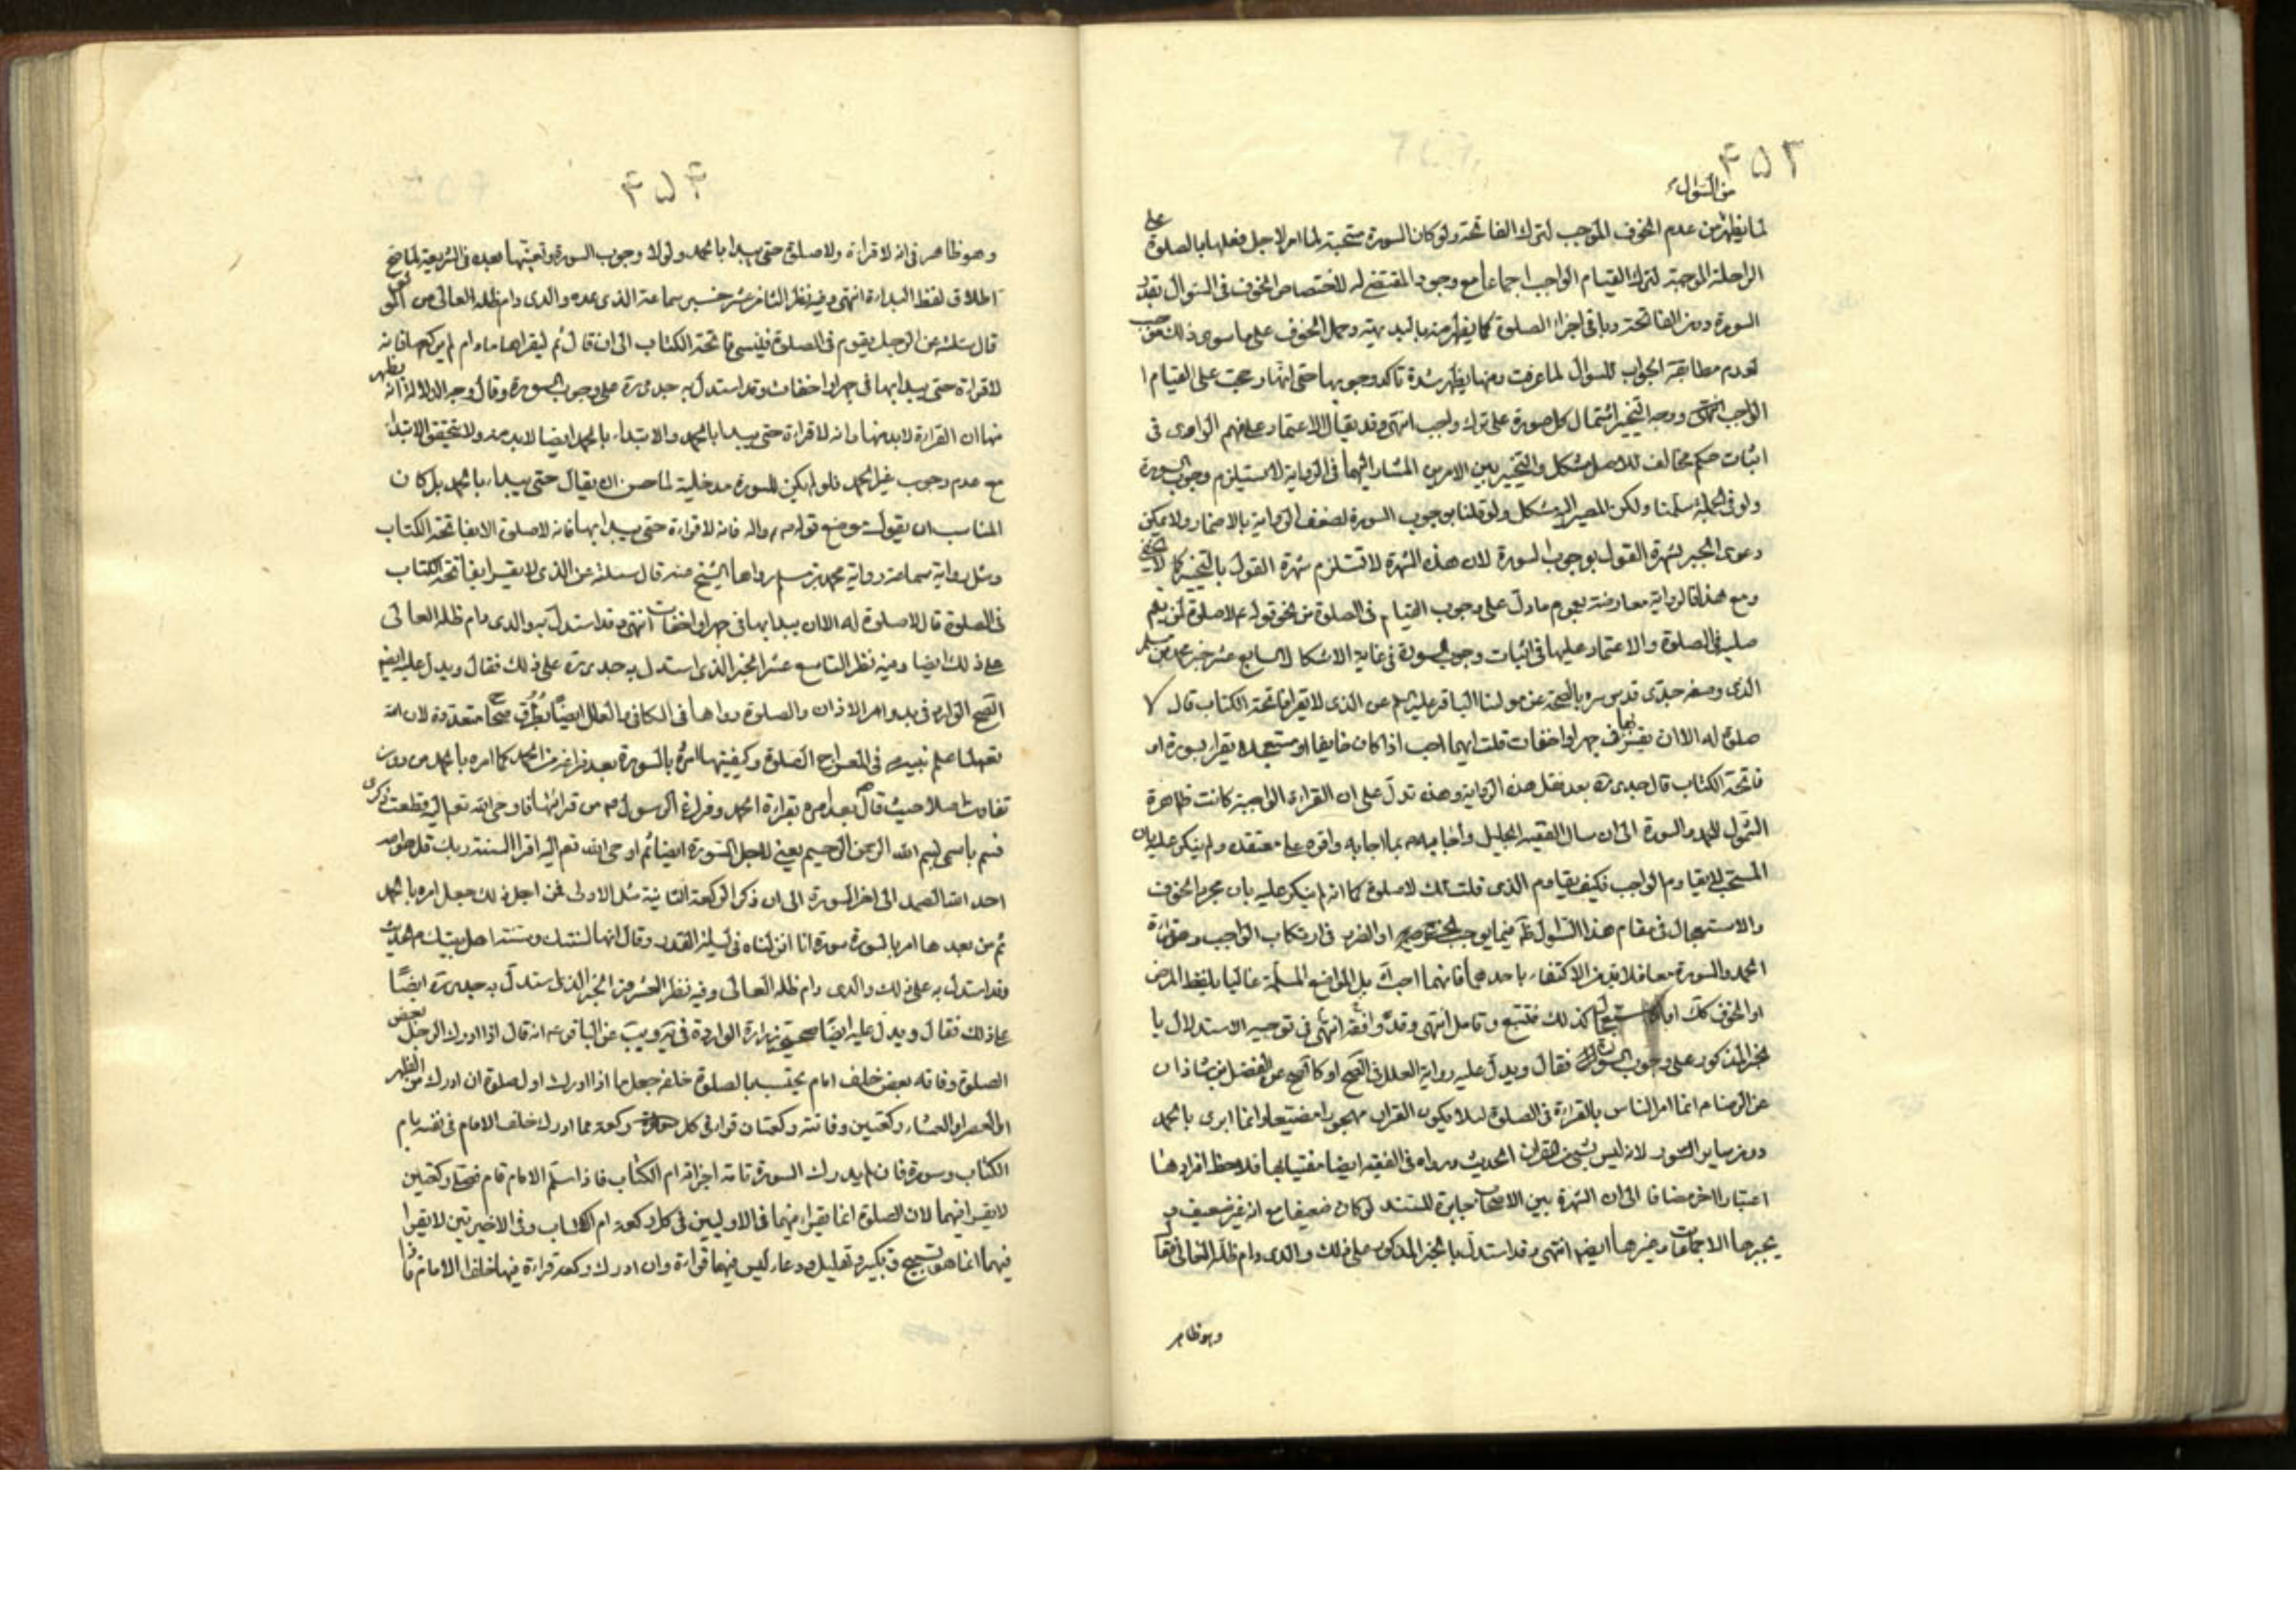 ٤٥٣
من السؤال
لما يظهر من عدم الخوف الموجب لترك الفاتحة ولو كان السورة مستحبة لما امر لاجل فعلها بالصلوة على
الراحلة الموجبة لترك القيام الواجب اجماعا مع وجود المقتضى له لاختصاص الخوف في السؤال بقدر
السورة دون الفاتحة وباقى اجزاء الصلوة كما يظهر منه بالبديهية وحمل الخوف على ما سوى ذلك
لعدم مطابقة الجواب للسؤال لما عرفت ومنها يظهر شدة تاكد وجوبها حتى انها رجحت على القيام ا
الواجب انتهى ووجه التخيير اشتمال كل صورة على ترك واجب انتهى وقد يقال الاعتماد على فهم الراوى في
اثبات حكم مخالف للاصل مشكل والتخيير بين الامرين المشار اليهما في الرواية لا يستلزم وجوب السورة
ولو في الجملة سلمنا ولكن المصير اليه مشكل ولو قلنا بوجوب السورة لضعف الرواية بالاضمار ولا يمكن
دعوى الجبر بشهرة القول بوجوب السورة لان هذه الشهرة لا تستلزم شهرة القول بالتخيير كما لا يخفى
ومع هذا فالرواية معارضة بعموم ما دل على وجوب القيام في الصلوة من نحو قوله ع لا صلوة لمن لم يقم
صلبه في الصلوة والاعتماد عليها في اثبات وجوب السورة في غاية الاشكال السابع عشر خبر محمد بن مسلم
الذى وصفه جدى قدس سره بالصحة عن مولينا الباقر عليه السلم عن الذى لا يقرا فاتحة الكتاب قال لا
صلوة له الا ان يقرا بها في جهر او اخفات قلت ايهما احب اذا كان خايفا او مستعجلا يقرا بسورة او
فاتحة الكتاب قال جدى ره بعد نقل هذه الرواية وهذه تدل على ان القراءة الواجبة كانت ظاهرة
الشمول للحمد والسورة الى ان سال الفقيه الجليل واجابه ع بما اجابه واقره على معتقده ولم ينكر عليه بان
المستحب لا يقاوم الواجب فكيف يقاوم الذى قلت لك لا صلوة كما انه لم ينكر عليه بان مجرد الخوف
والاستعجال في مقام هذا السؤال
الحمد والسورة معا فلا بد من الاكتفاء باحدهما فايهما احب بل المواضع المسلمة غالبا بلفظ المرض
او الخوف كك اما كذلك فتتبع وتامل انتهى وقد وافقه في توجيه الاستدلال با
لخبر المذكور على وجوب السورة فقال ويدل عليه رواية العلل في الصحيح او كالصحيح عن الفضل بن شاذان
عن الرضا ع انما امر الناس بالقراءة في الصلوة لئلا يكون القران مهجورا مضيعا وانما ابدى بالحمد
دون ساير السور لانه ليس شئ من القران الحديث ورواه في الفقيه ايضا مفتيا بها فلاحظ
اعتبارا اخر مضافا الى ان الشهرة بين الاصحاب جابرة للسند لو كان ضعيفا مع انه غير ضعيف و
يجبرها الاجماعات وغيرها ايضا انتهى وقد استدل بالخبر المذكور على ذلك والدى دام ظله العالى فقال
وهو ظاهر
٤٥٤
وهو ظاهر في انه لا قراءة ولا صلوة حتى يبدا بالحمد ولولا وجوب السورة وتعينها بعده في الشريعة لما صح
اطلاق لفظ البداءة انتهى وفيه نظر الثامن عشر خبر سماعة الذى عده والدى دام ظله العالى من الموثق
قال سئلته عن الرجل يقوم في الصلوة فينسى فاتحة الكتاب الى ان قال ثم ليقراها ما دام لم يركع فانه
لا قراءة حتى يبدا بها في جهر او اخفات وقد استدل به جدى ره على وجوب السورة وقال وجه الدلالة انه يظهر
منها ان القراءة لا بد منها وانه لا قراءة حتى يبدا بالحمد والابتداء بالحمد ايضا لا بد منه ولا يتحقق الابتداء
مع عدم وجوب غير الحمد فلو لم يكن للسورة مدخلية لما حسن ان يقال حتى يبداء بالحمد بل كان
المناسب ان يقول موضع قوله ص واله فانه لا قراءة حتى يبدا بها فانه لا صلوة الا بفاتحة الكتاب
ومثل رواية سماعة رواية محمد بن مسلم رواها الشيخ عنه قال سئلته عن الذى لا يقرا بفاتحة الكتاب
في الصلوة قال لا صلوة له الا ان يبدا بها في جهر او اخفات انتهى وقد استدل به والدى دام ظله العالى
على ذلك ايضا وفيه نظر التاسع عشر الخبر الذى استدل به جدى ره على ذلك فقال ويدل عليه ايضا
الصحيح الوارد في بدو امر الاذان والصلوة رواها في الكافى والعلل ايضا بطرق صحاح متعددة لان الله
تعالى لما علم نبيه ص في المعراج الصلوة وكيفيتها امره بالسورة بعد فراغه من الحمد كما امره بالحمد من دون
تفاوت اصلا حيث قال بعد امره بقراءة الحمد وفراغ الرسول ص من قرائتها فاوحى الله تعالى اليه قطعت ذكرى
فسم باسمى بسم الله الرحمن الرحيم يعنى لاجل السورة ايضا ثم اوحى الله تعم اليه اقرا السنة ربك قل هو الله
احد الله الصمد الى اخر السورة الى ان ذكر الركعة الثانية مثل الاولى فمن اجل ذلك جعل امره بالحمد
ثم من بعدها امر بالسورة سورة انا انزلناه في ليلة القدر وقال انها لسنتك وسنة اهل بيتك الحديث
وقد استدل به على ذلك والدى دام ظله العالى وفيه نظر العشرون الخبر الذى استدل به جدى ره ايضا
على ذلك فقال ويدل عليه ايضا صحيحة زرارة الواردة في يه ويب عن الباقر ع انه قال اذا ادرك الرجل بعض
الصلوة وفاته بعض خلف امام يحتسب بالصلوة خلفه جعل ما ادرك اول صلوة ان ادرك من الظهر
او العصر او العشاء ركعتين وفاتته ركعتان قرا في كل ركعة مما ادرك خلف الامام في نفسه بام
الكتاب وسورة فان لم يدرك السورة تامة اجزاته ام الكتاب فاذا سلم الامام قام فصلى ركعتين
لا يقرا فيهما لان الصلوة انما يقراء فيهما في الاوليين في كل ركعة ام الكتاب وفي الاخيرتين لا يقرا
فيهما انما هو تسبيح وتكبير وتهليل ودعاء ليس فيهما قراءة وان ادرك ركعة قراءة فيها خلف الامام فاذا